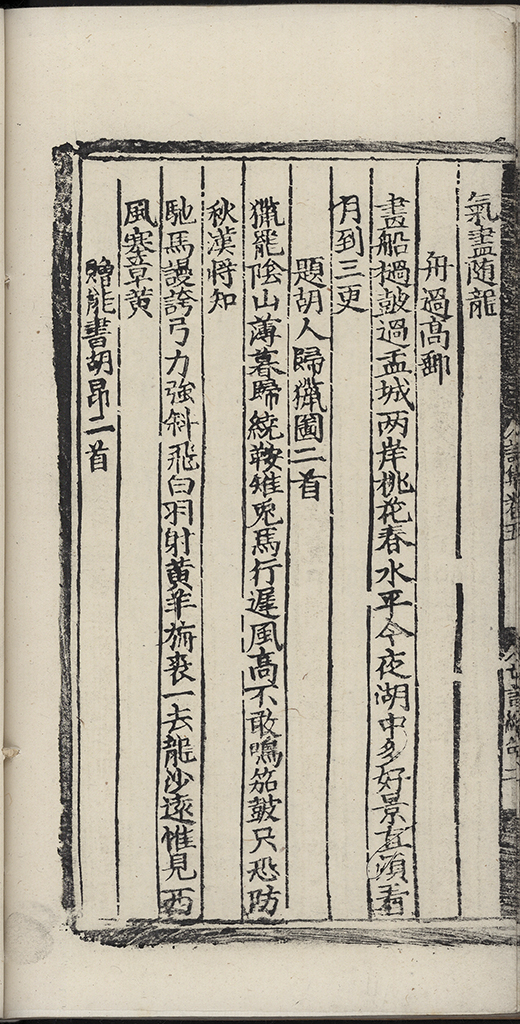 氣盡随龍
舟過高郵
畫船撾皷過盂城两岸桃花春水平今夜湖中多好景直湏看
月到三更
題胡人歸獵圖二首
獵罷陰山薄暮歸繞鞍雉兎馬行遲風髙不敢鳴笳皷只恐防
秋漢將知
馳馬謾誇弓力強斜飛白羽射黄羊旃裘一去龍沙遠惟見西
風塞草黄
贈能書胡昂二首